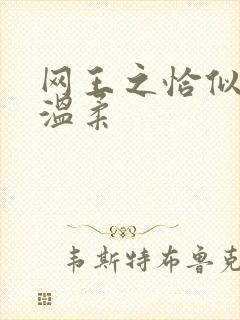 网王之恰似
温柔
韦斯特布鲁克